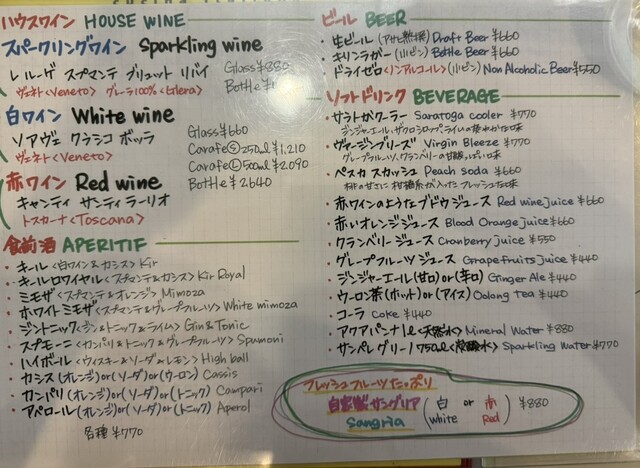 ハウスワイン HOUSE WINE
スパークリングワイン Sparkling wine
レ ルーゲ スプマンテ ブリュット リバイ Glass ¥880
ヴェネト<Veneto> グレーラ100%<Glera> Bottle ¥
白ワイン White wine
ソアヴェ クラシコ ボッラ
ヴェネト<Veneto>
Glass ¥660
CarafeⓈ250ml ¥1,210
CarafeⓁ500ml ¥2090
Bottle ¥2640
赤ワイン Red wine
キャンティ サンティ ラーリオ
トスカーナ<Toscana>
食前酒 APERITIF
・キール <白ワイン&カシス> Kir
・キールロワイヤル <スプマンテ&カシス> Kir Royal
・ミモザ <スプマンテ&オレンジ> Mimoza
・ホワイトミモザ <スプマンテ&グレープフルーツ> White mimoza
・ジントニック <ジン&トニック&ライム> Gin & Tonic
・スプモーニ <カンパリ&トニック&グレープフルーツ> Spumoni
・ハイボール <ウィスキー&ソーダ&レモン> High ball
・カシス (オレンジ)or(ソーダ)or(ウーロン) Cassis
・カンパリ (オレンジ)or(ソーダ)or(トニック) Campari
・アペロール (オレンジ)or(ソーダ)or(トニック) Aperol
各種 ¥770
ビール BEER
・生ビール (アサヒ熟撰) Draft Beer ¥660
・キリンラガー (小ビン) Bottle Beer ¥660
・ドライゼロ <ノンアルコール> (小ビン) Non Alcoholic Beer ¥550
ソフトドリンク BEVERAGE
・サラトガクーラー Saratoga cooler ¥770
ジンジャーエール、ザクロシロップ、ライムの爽やかな味
・ヴァージンブリーズ Virgin Bleeze ¥770
グレープフルーツ、クランベリーの甘酸っぱい味
・ペスカ スカッシュ Peach soda ¥660
桃の甘さに柑橘系が入ったフレッシュな味
・赤ワインのようなブドウジュース Red wine juice ¥660
・赤いオレンジジュース Blood Orange juice ¥660
・クランベリー ジュース Cranberry juice ¥550
・グレープフルーツ ジュース Grapefruits juice ¥440
・ジンジャーエール (甘口)or(辛口) Ginger Ale ¥440
・ウーロン茶 (ホット)or(アイス) Oolong Tea ¥440
・コーラ Coke ¥440
・アクアパンナ 1ℓ <天然水> Mineral Water ¥880
・サンペレグリーノ 750ml <炭酸水> Sparkling Water ¥770
フレッシュフルーツたっぷり
自家製サングリア (白 or 赤) ¥880
Sangria (white Red)